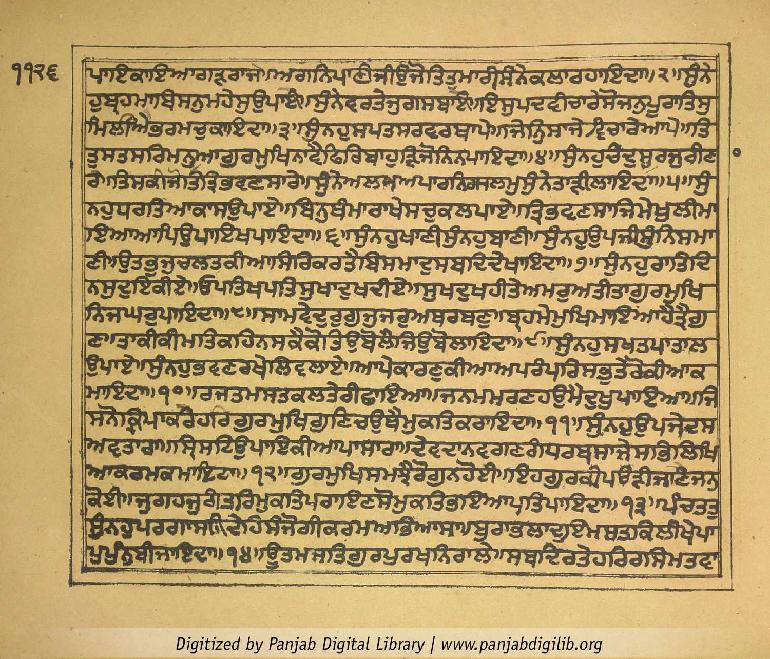 ੧੧੨੬
ਪਾਇਕਾਇਆਗੜਰਾਜੇ॥ਅਗਨਿਪਾਣੀਜੀਉਜੋਤਿਤੁਮਾਰੀਸੁੰਨੇਕਲਾਰਹਾਇਦਾ॥੨॥ਸੁੰਨੇ
ਹੁਬ੍ਰਹਮਾਬਿਸਨੁਮਹੇਸੁਉਪਾਏ॥ਸੁੰਨੇਵਰਤੇਜੁਗਸਬਾਏ॥ਇਸੁਪਦਵੀਚਾਰੇਸੋਜਨੁਪੂਰਾਤਿਸੁ
ਮਿਲੀਐਭਰਮੁਚੁਕਾਇਦਾ॥੩॥ਸੁੰਨਹੁਸਪਤਸਰਵਰਥਾਪੇ॥ਜਿਨਿਸਾਜੇਵੀਚਾਰੇਆਪੇ॥ਤਿ
ਤੁਸਤਸਰਿਮਨੂਆਗੁਰਮੁਖਿਨਾਵੈਫਿਰਿਬਾਹੁੜਿਜੋਨਿਨਪਾਇਦਾ॥੪॥ਸੁੰਨਹੁਚੰਦੁਸੂਰਜੁਗੈਣਾ
ਰੇ॥ਤਿਸਕੀਜੋਤਿਤ੍ਰਿਭਵਣਸਾਰੇ॥ਸੁੰਨੇਅਲਖਅਪਾਰਨਿਰਾਲਮੁਸੁੰਨੇਤਾੜੀਲਾਇਦਾ॥੫॥ਸੁੰ
ਨਹੁਧਰਤਿਆਕਾਸੁਉਪਾਏ॥ਬਿਨੁਥੰਮਾਰਾਖੇਸਚੁਕਲਪਾਏ॥ਤ੍ਰਿਭਵਣਸਾਜਿਮੇਖੁਲੀਮਾ
ਇਆਆਪਿਉਪਾਇਖਪਾਇਦਾ॥੬॥ਸੁੰਨਹੁਖਾਣੀਸੁੰਨਹੁਬਾਣੀ॥ਸੁੰਨਹੁਉਪਜੀਸੁੰਨਿਸਮਾ
ਣੀ॥ਉਤਭੁਜੁਚਲਤੁਕੀਆਸਿਰਿਕਰਤੈਬਿਸਮਾਦੁਸਬਦਿਦੇਖਾਇਦਾ॥੭॥ਸੁੰਨਹੁਰਾਤਿਦਿ
ਨਸੁਦੁਇਕੀਏ॥ਓਪਤਿਖਪਤਿਸੁਖਾਦੁਖਦੀਏ॥ਸੁਖਦੁਖਹੀਤੇਅਮਰੁਅਤੀਤਾਗੁਰਮੁਖਿ
ਨਿਜਘਰੁਪਾਇਦਾ॥੮॥ਸਾਮਵੇਦੁਰੁਗੁਜੁਜਰੁਅਥਰਬਣੁ॥ਬ੍ਰਹਮੇਮੁਖਿਮਾਇਆਹੈਤ੍ਰੈਗੁ
ਣ॥ਤਾਕੀਕੀਮਤਿਕਹਿਨਸਕੈਕੋਤਿਉਬੋਲੇਜਿਉਬੋਲਾਇਦਾ॥੯॥ਸੁੰਨਹੁਸਪਤਪਾਤਾਲ
ਉਪਾਏ॥ਸੁੰਨਹੁਭਵਣਰਖੇਲਿਵਲਾਏ॥ਆਪੇਕਾਰਣੁਕੀਆਅਪਰੰਪਰਿਸਭੁਤੇਰੋਕੀਆਕ
ਮਾਇਦਾ॥੧੦॥ਰਜਤਮਸਤਕਲਤੇਰੀਛਾਇਆ॥ਜਨਮਮਰਣਹਉਮੈਦੁਖੁਪਾਇਆ॥ਜਿ
ਸਨੋਕ੍ਰਿਪਾਕਰੇਹਰਿਗੁਰਮੁਖਿਗੁਣਿਚਉਥੈਮੁਕਤਿਕਰਾਇਦਾ॥੧੧॥ਸੁੰਨਹੁਉਪਜੇਦਸ
ਅਵਤਾਰਾ॥ਸ੍ਰਿਸਟਿਉਪਾਇਕੀਆਪਾਸਾਰਾ॥ਦੇਵਦਾਨਵਗਣਗੰਧਰਬਸਾਜੇਸਭਿਲਿਖਿ
ਆਕਰਮਕਮਾਇਦਾ॥੧੨॥ਗੁਰਮੁਖਿਸਮਝੈਰੋਗੁਨਹੋਈ॥ਇਹਗੁਰਕੀਪਉੜੀਜਾਣੈਜਨੁ
ਕੋਈ॥ਜੁਗਹਜੁਗੰਤਰਿਮੁਕਤਿਪਰਾਇਣਸੋਮੁਕਤਿਭਇਆਪਤਿਪਾਇਦਾ॥੧੩॥ਪੰਚਤਤੁ
ਸੁੰਨਹੁਪਰਗਾਸਾ॥ਦੇਹਸੰਜੋਗੀਕਰਮਅਭਿਆਸਾ॥ਬੁਰਾਭਲਾਦੁਇਮਸਤਕਿਲੀਖੇਪਾ
ਪੁਪੁੰਨੁਬੀਜਾਇਦਾ॥੧੪॥ਊਤਮਸਤਿਗੁਰਪੁਰਖਨਿਰਾਲੇ॥ਸਬਦਿਰਤੇਹਰਿਰਸਿਮਤਵਾ
Digitized by Panjab Digital Library | www.panjabdigilib.org